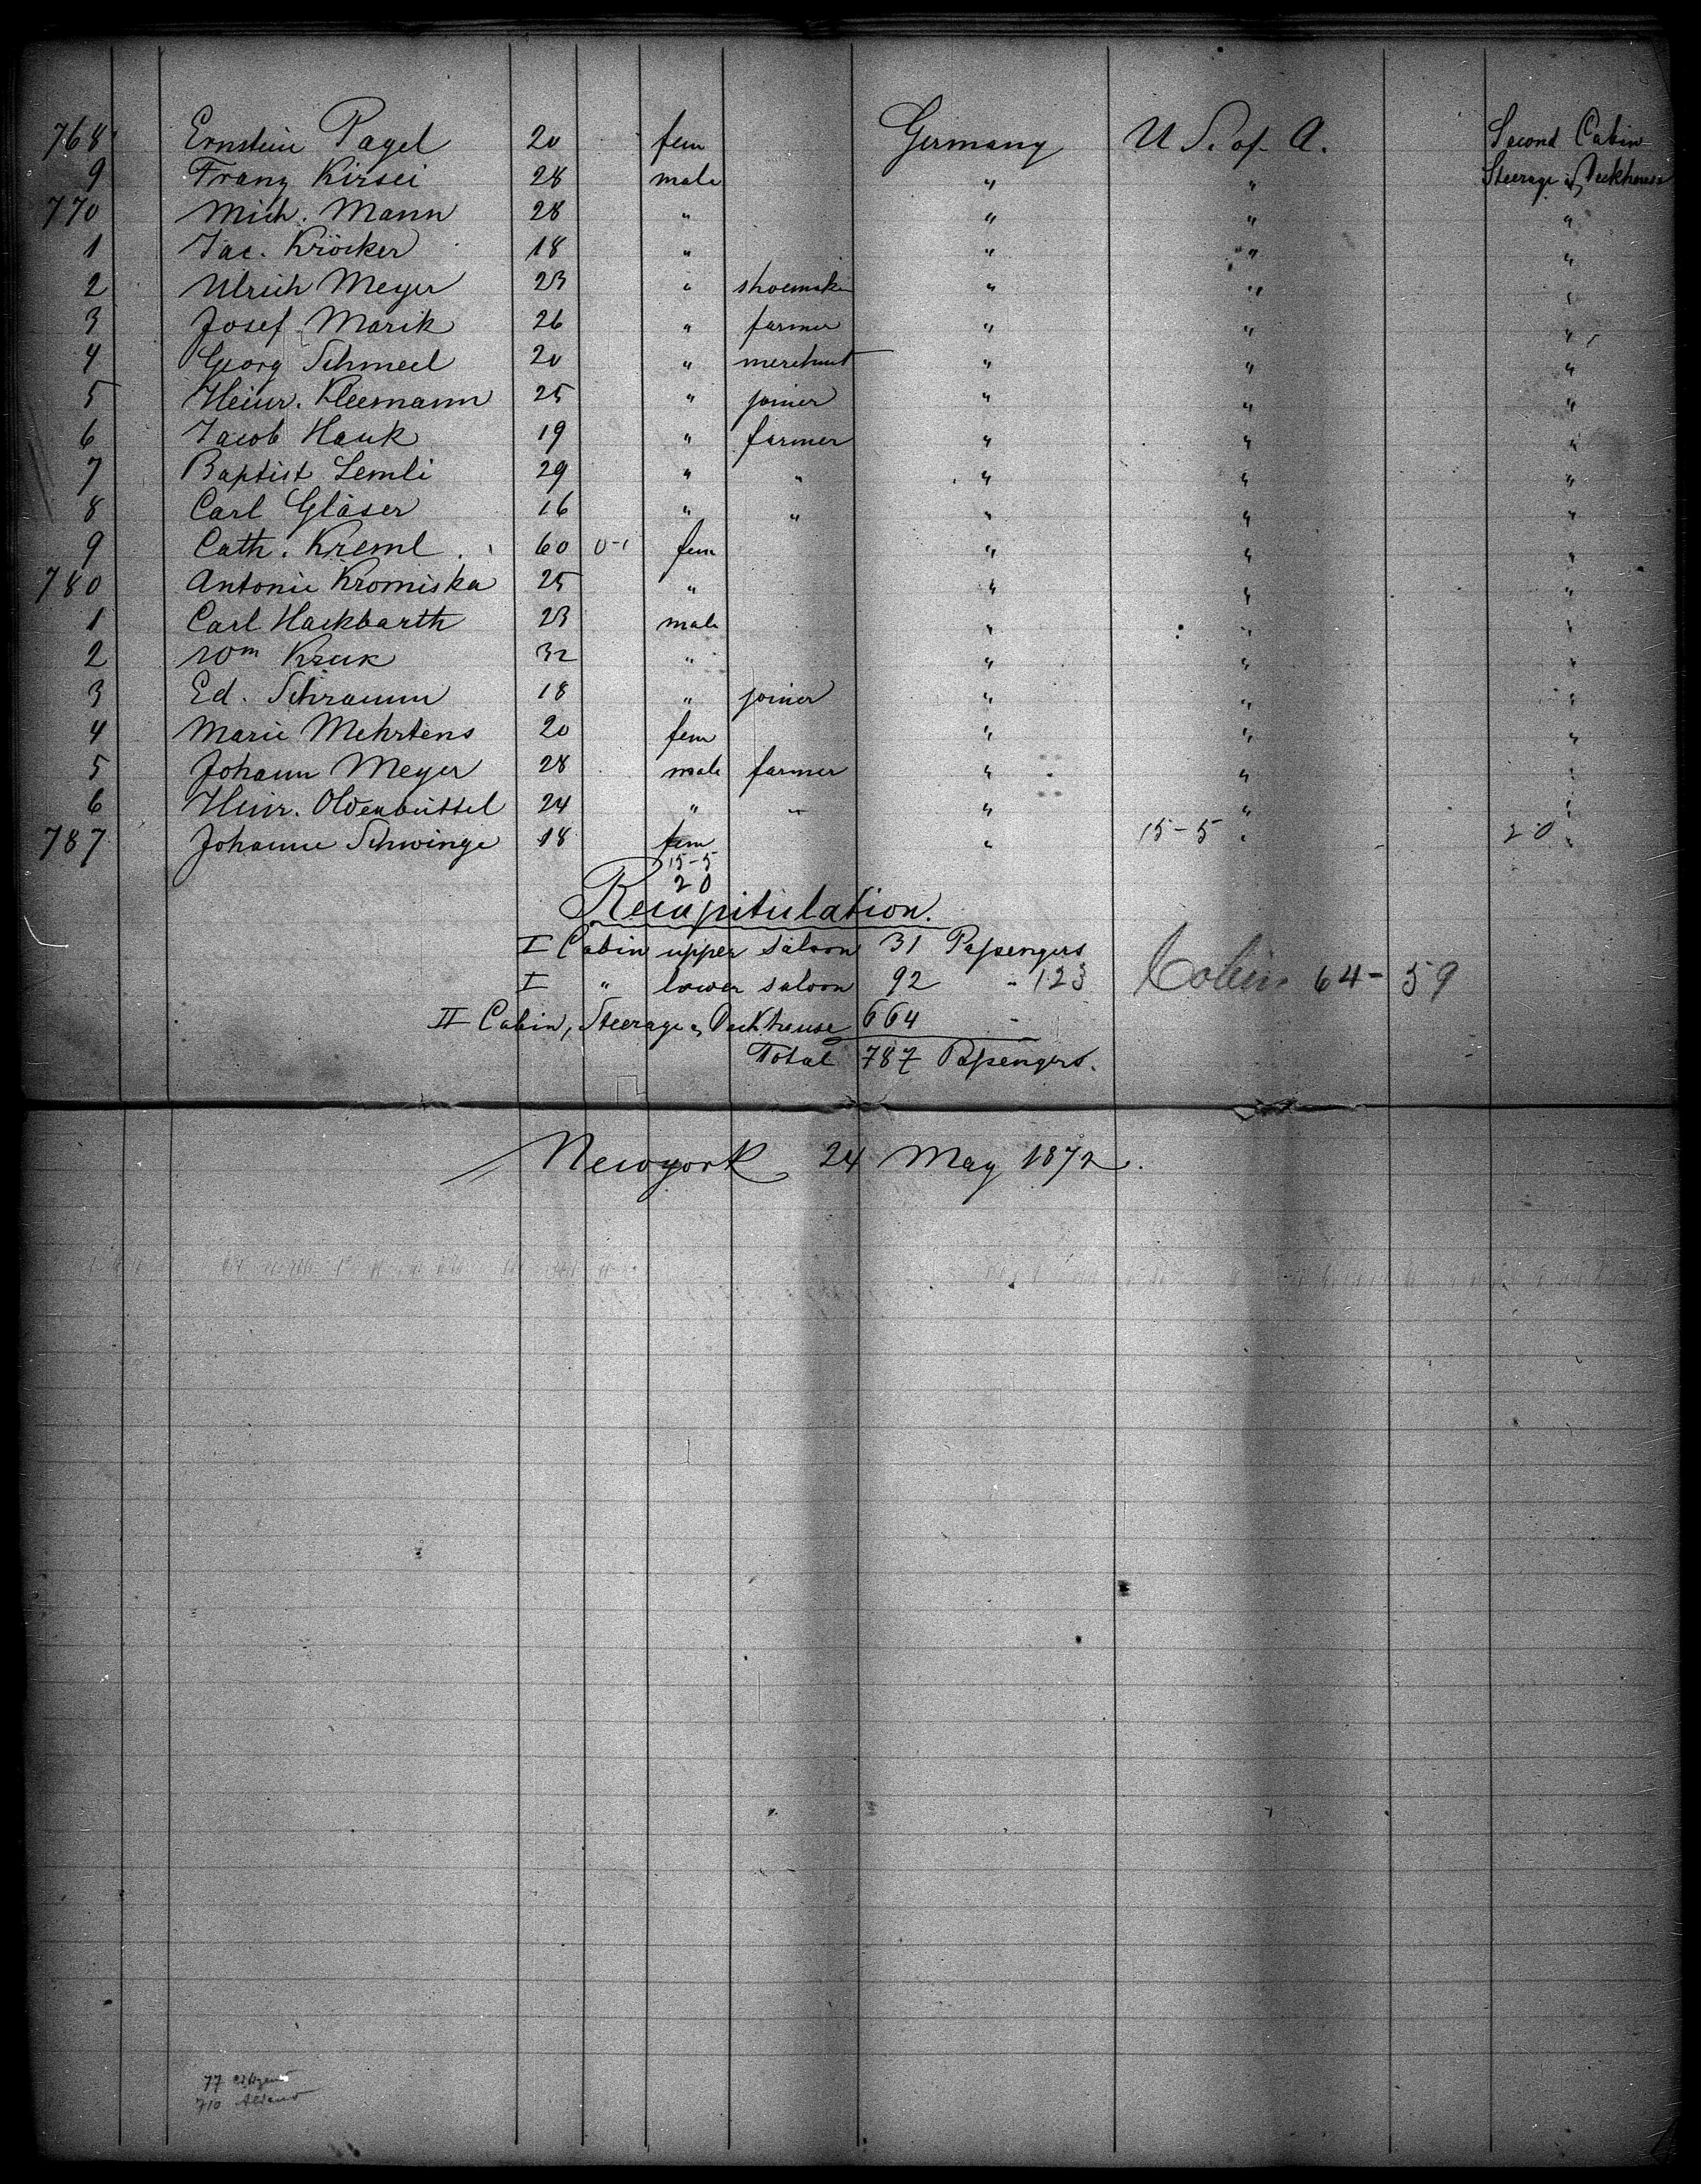 768 Ernstein Pagel 20 fem Germany U S. of A. Second Cabin
9 Franz Kirsei 28 male " " Steerage & Deckhouse
770 Mich. Mann 28 " " " "
1 Jac. Kröcker 18 " " " "
2 Ulrich Meyer 23 " shoemaker " " "
3 Josef Marik 26 " farmer " " "
4 Georg Schmeel 20 " merchant " " "
5 Heinr. Kleemann 25 " joiner " " "
6 Jacob Hauk 19 " farmer " " "
7 Baptist Lemli 29 " " " " "
8 Carl Gläser 16 " " " " "
9 Cath. Kreml 60 0-1 fem " " "
780 Antonie Kromiska 25 " " " "
1 Carl Hackbarth 23 male " " "
2 Wm Kruk 32 " " " "
3 Ed. Schramm 18 " joiner " " "
4 Marie Mehrtens 20 fem " " "
5 Johann Meyer 28 male farmer " " "
6 Heinr. Oldenbüttel 24 " " " " "
787 Johanne Schwinge 18 fem " 15-5 " 20 "
15-5
20
Recapitulation.
I Cabin upper saloon 31 Passengers
I " lower saloon 92 " 123 Cabin 64-59
II Cabin, Steerage & Deckhouse 664 "
Total 787 Passengers.
Newyork 24 May 1872.
77 citizens
710 Aliens